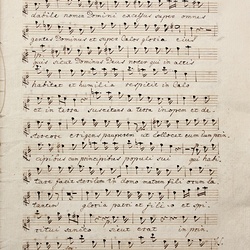 dabile nomen Domini excelsus super omnes
gentes Dominus et super Cælos gloria ejus
quis sicut Dominus Deus noster qui in altis
habitat et humilia respicit in Cælo
et in terra suscitans a terra inopem et de
stercore erigens pauperem ut collocet eum cum prin,
cipibus cum principibus populi sui qui habi,
tare facit sterilem in domo matrem filiorum læ
tantem gloria patri et filio et spi
ritui sancto sicut erat in prin,